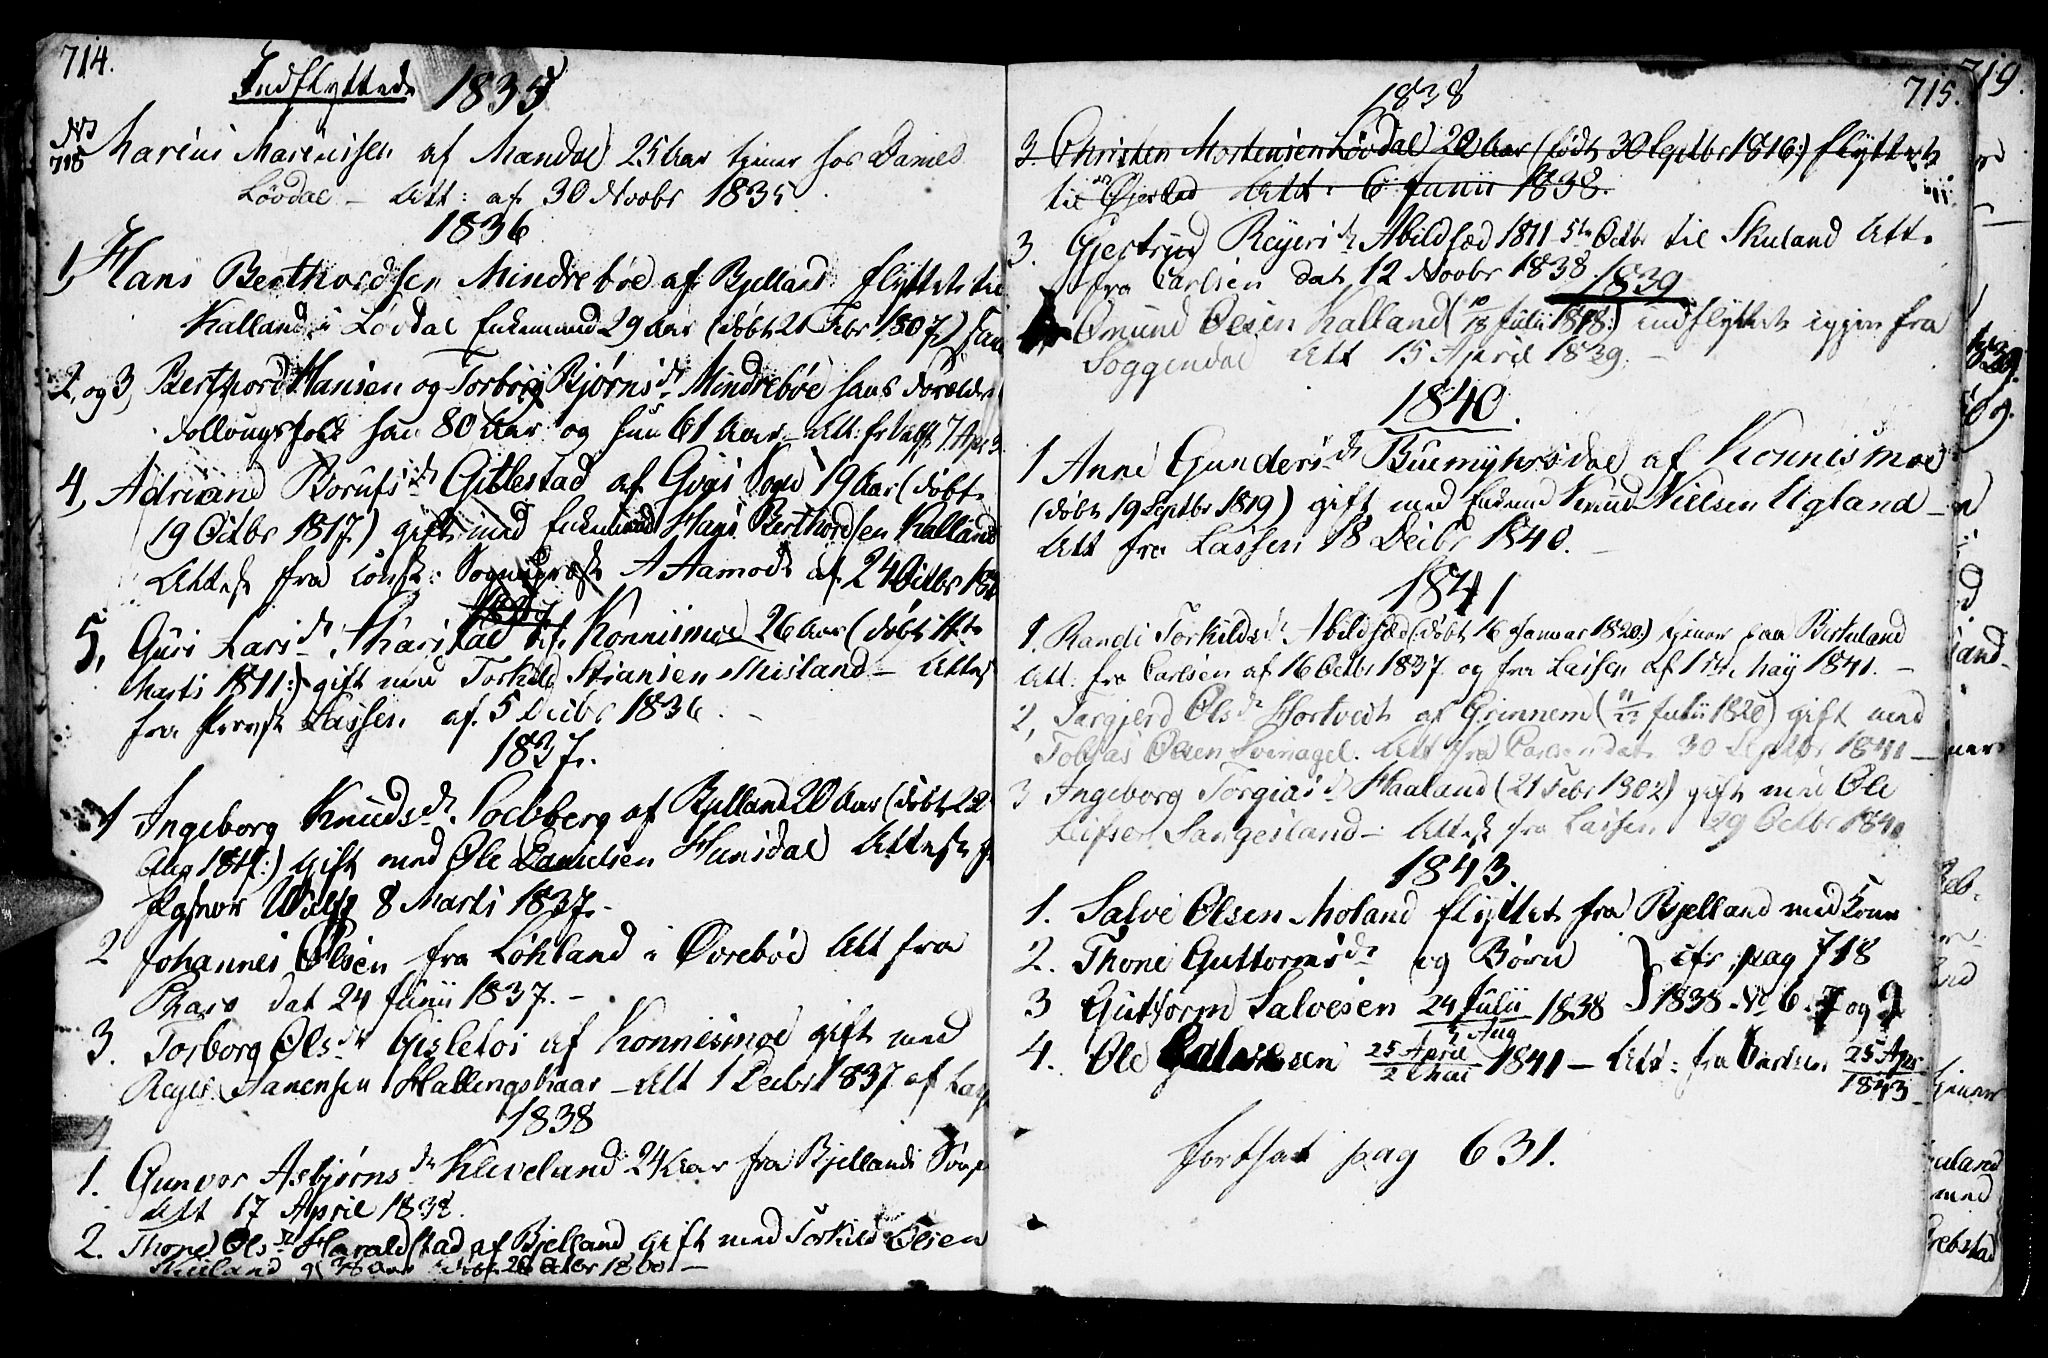 714.
Indflyttede 1835
No
715
Marius Marcussen af Mandal 25 Aar tjener hos Daniel
Løvdal – Att: af 30 Novbr 1835.
1836
1, Hans Berthordsen Mindrebøe af Bjelland flyttet til
Kalland i Løvdal Enkemand 29 Aar (døbt 21 Febr 1807)
2, og 3, Berthord Hansen og Torborg Biørnsdr Mindrebøe hans Forældre
Follougsfolk han 80 Aar og hun 61 Aar – Att: fr Wulff 7 Apr 3
4, Adriane Borufsdr Gitlestad af Gyas Sogn 19 Aar (døbt
19 Octbr 1817) gift med Enkemand Hans Berthordsen Kalland
Attest fra const: Sognepræst A Aamodt af 24 Octbr 183
5, Guri Larsdr Tharistad af Konnismoe 26 Aar (døbt 14de
Marti 1811:) gift med Torkild Stiansen Misland – Attest
fra Provst Lassen af 5 Decbr 1836. –
1837.
1 Ingeborg Knudsdr Solberg af Bjelland 20 Aar (døbt 22
Aug 1817:) gift med Ole Danielsen Hunsdal Attest f
Pastor Wulff 8 Marti 1837. –
2 Johannes Olsen fra Løhland i Øvrebøe Att fra
Tharo dat 24 Junii 1837. –
3. Torborg Olsdr Gisletoi af Konnismoe gift med
Reyer Hanensen Hallingskaar – Att 1 Decbr 1837 af Lass
1838
1. Gunvor Asbjørnsdr Kleveland 24 Aar fra Bjellands Sogn
Att 17 April 1838.
2. Thone Olsdr Haraldstad af Bjelland gift med Torkild Olsen
Skuland 38 Aar døbt 26 Octbr 1800 –
715.
1838
3. Christen Mortensen Løvdal 22 Aar (født 30 Septbr 1816:) flyttet
til Øiestad Att: 6 Junii 1838.
3. Gjertrud Reyersdr Abildsæd 1811 5te Octbr til Skuland Att.
fra Carlsen dat 12 Novbr 1838
1839
Omund Olsen Kalland (10/18 Julii 1818:) indflyttet igjen fra
Soggendal Att 15 April 1839. –
1840.
1 Anne Gundersdr Buemyhrsdal af Konnismoe
(døbt 19 Septbr 1819) gift med Enkemd Knud Nielsen Ugland –
Att fra Lassen 18 Decbr 1840. –
1841
1. Randi Torkildsdr Abildsæd (døbt 16 Januar 1820:) tjener paa Birkeland
Att: fra Carlsen af 16 Octbr 1837 og fra Lassen af 1ste May 1841. –
2, Targjerd Olsdr Hortvedt af Grinnem (11/23 Julii 1820) gift med
Tobias Olsen Svinagel. Att fra Carlsen dat 30 Septbr 1841 –
3 Ingeborg Torgiusdr Haaland (21 Febr 1802) gift med Ole
Leifsen Sangesland – Attest fra Lassen 29 Octbr 1841
1843.
1. Salve Olsen Moland flyttet fra Bjelland med Kone
2. Thone Guttormsdr og Børn } cfr. pag 718
3 Guttorm Salvesen 24 Julii / 5 Aug 1838 } 1838 No 6. 7 og 2
4. Ole Salvesen 25 April / 2 Mai 1841 – Att: fra Carlsen 25 Apr / 1843 –
fortsat pag 631.
719.